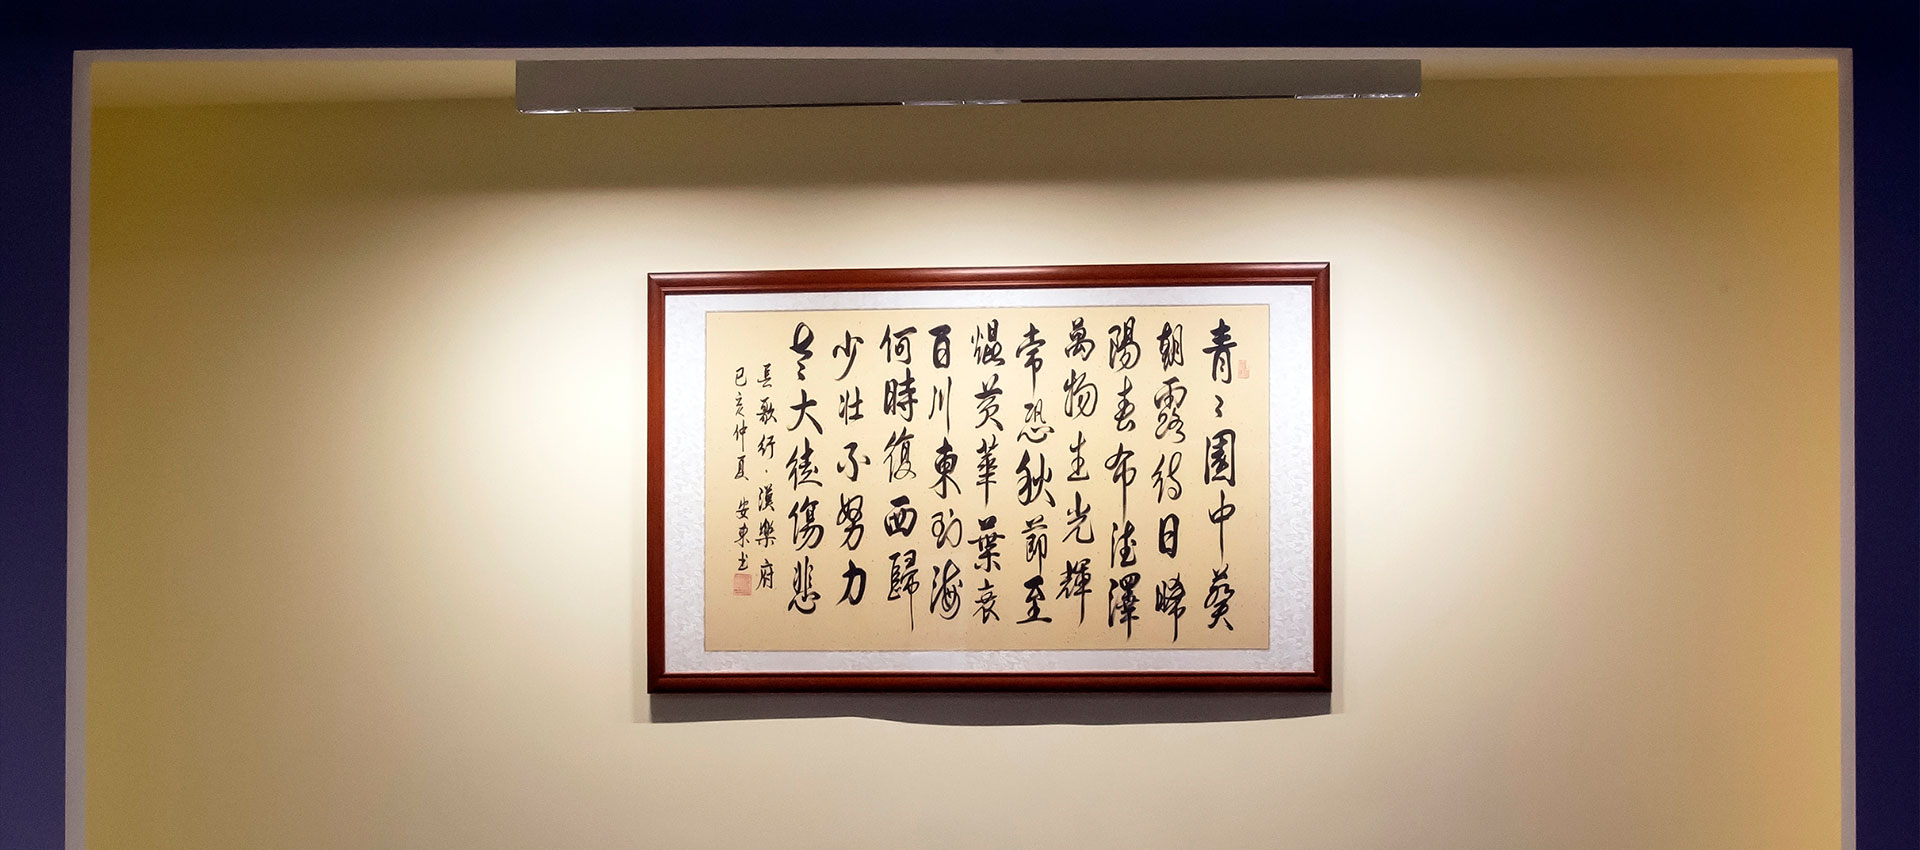 青々園中葵
朝露待日晞
陽春布德澤
萬物生光輝
常恐秋節至
焜黃華葉衰
百川東到海
何時復西歸
少壯不努力
老大徒傷悲
長歌行·漢樂府
己亥仲夏 安東书